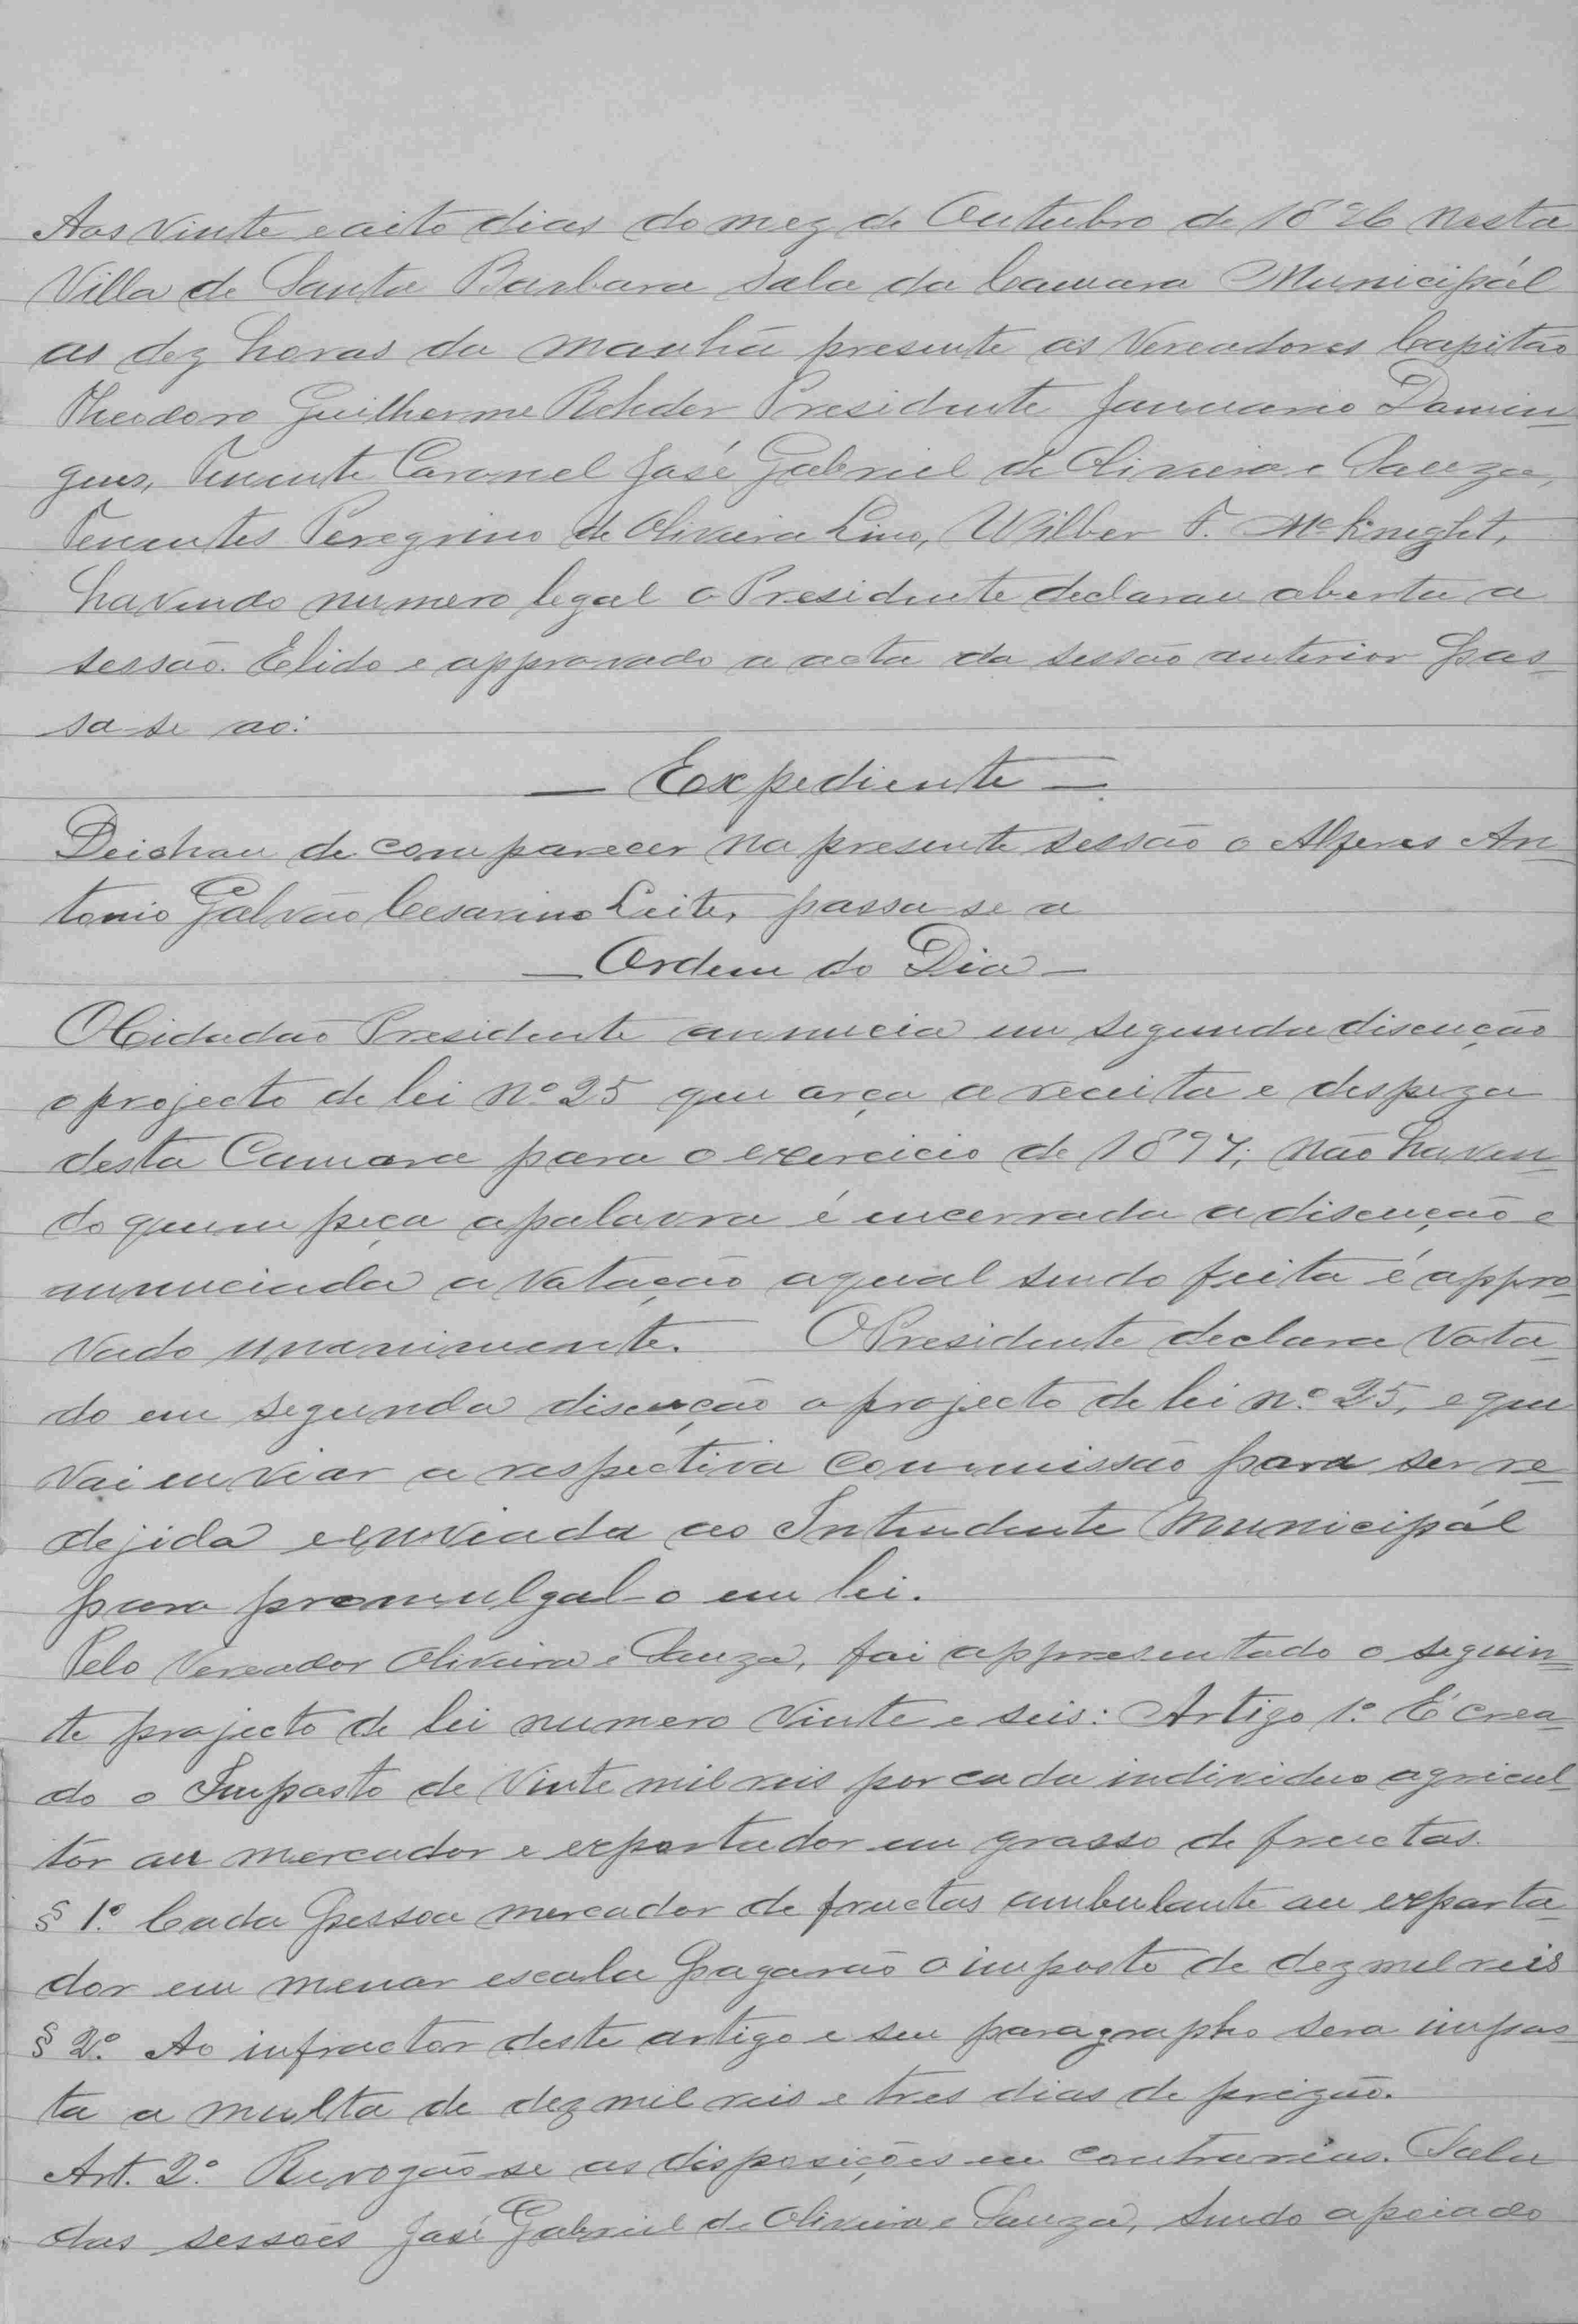 Aos vinte e oito dias do mez de Outubro de 1896 nesta
Villa de Santa Barbara sala da Camara Municipál
as dez horas da manhã presente os Vereadores Capitão
Theodoro Guilherme Rehder Presidente Januario Domin-
gues, Tenente Coronel José Gabriel de Oliveira e Souza,
Tenentes Peregrino de Oliveira Lino, Wilber F. McKnight,
havendo numero legal o Presidente declarou aberta a
sessão. E lido e approvado a acta da sessão anterior pas-
sa-se ao:
— Expediente —
Deichou de comparecer na presente sessão o Alferes An-
tonio Galvão Cesarino Leite, passa-se a
— Ordem do Dia —
O Cidadão Presidente annucia em segunda discução
o projecto de lei nº 25 que orça a receita e despeza
desta Camara para o exercicio de 1897; não haven-
do quem peça a palavra é encerrada a discução e
annunciada a votação a qual sendo feita é appro-
vado unanimente. O Presidente declara vota-
do em segunda discução o projecto de lei nº 25, e que
vai enviar a respectiva commissão para ser re-
dejida e enviada ao Intendente Municipál
para promulgal-o em lei.
Pelo Vereador Oliveira e Souza, foi appresentado o seguin-
te projecto de lei numero vinte e seis: Artigo 1º É crea-
do o Imposto de vinte mil reis por cada individuo agricul-
tor ou mercador e exportador em grosso de fructas.
§ 1º Cada pessoa mercador de fructas ambulante ou exporta-
dor em menor escala pagarão o imposto de dez mil reis
§ 2º Ao infractor deste artigo e seu paragrapho sera impos-
ta a multa de dez mil reis e tres dias de prizão.
Art. 2º Revogão-se as disposições em contrarias. Sala
das sessões José Gabriel de Oliveira e Souza, sendo apoiado